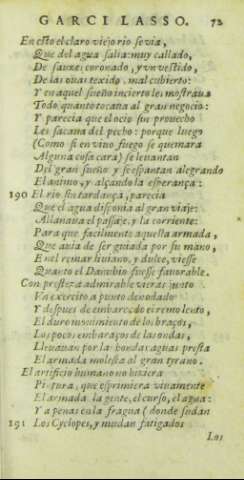 GARCI LASSO. 72
En esto el claro viejo rio se via,
Que del agua salia muy callado,
De sauzes coronado, y vn vestido,
De las ouas texido, mal cubierto:
Y en aquel sueño incierto les mostraua
Todo quanto tocaua al gran negocio:
Y parecia que el ocio sin prouecho
Les sacaua del pecho: porque luego
(Como si en viuo fuego se quemara
Alguna cosa cara) se leuantan
Del gran sueño y se espantan alegrando
El animo, y alçando la esperança:
190 El rio sin tardança, parecia
Que el agua disponia al gran viaje:
Allanaua el passaje, y la corriente:
Para que facilmente aquella armada,
Que auia de ser guiada por su mano,
En el remar liuiano, y dulce, viesse
Quanto el Danubio fuesse fauorable.
Con presteza admirable vieras junto
Vn exercito a punto denodado
Y despues de embarcado el remo lento,
El duro mouimiento de los braços,
Los pocos embaraços de las ondas,
Lleuauan por las hondas aguas presta
El armada molesta al gran tyrano.
El artificio humano no hiziera
Pintura, que esprimiera viuamente
El armada la gente, el curso, el agua:
Y apenas en la fragua (donde sudan
191 Los Cyclopes, y mudan fatigados
Los